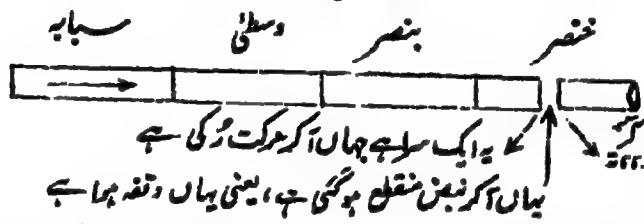 سبابہ وسطیٰ بنصر خنصر
یہ ایک سرا ہے جہاں آکر حرکت رُکی ہے
یہاں آکر نبض منقطع ہوگئی ہے، یعنی یہاں وقفہ ہوا ہے